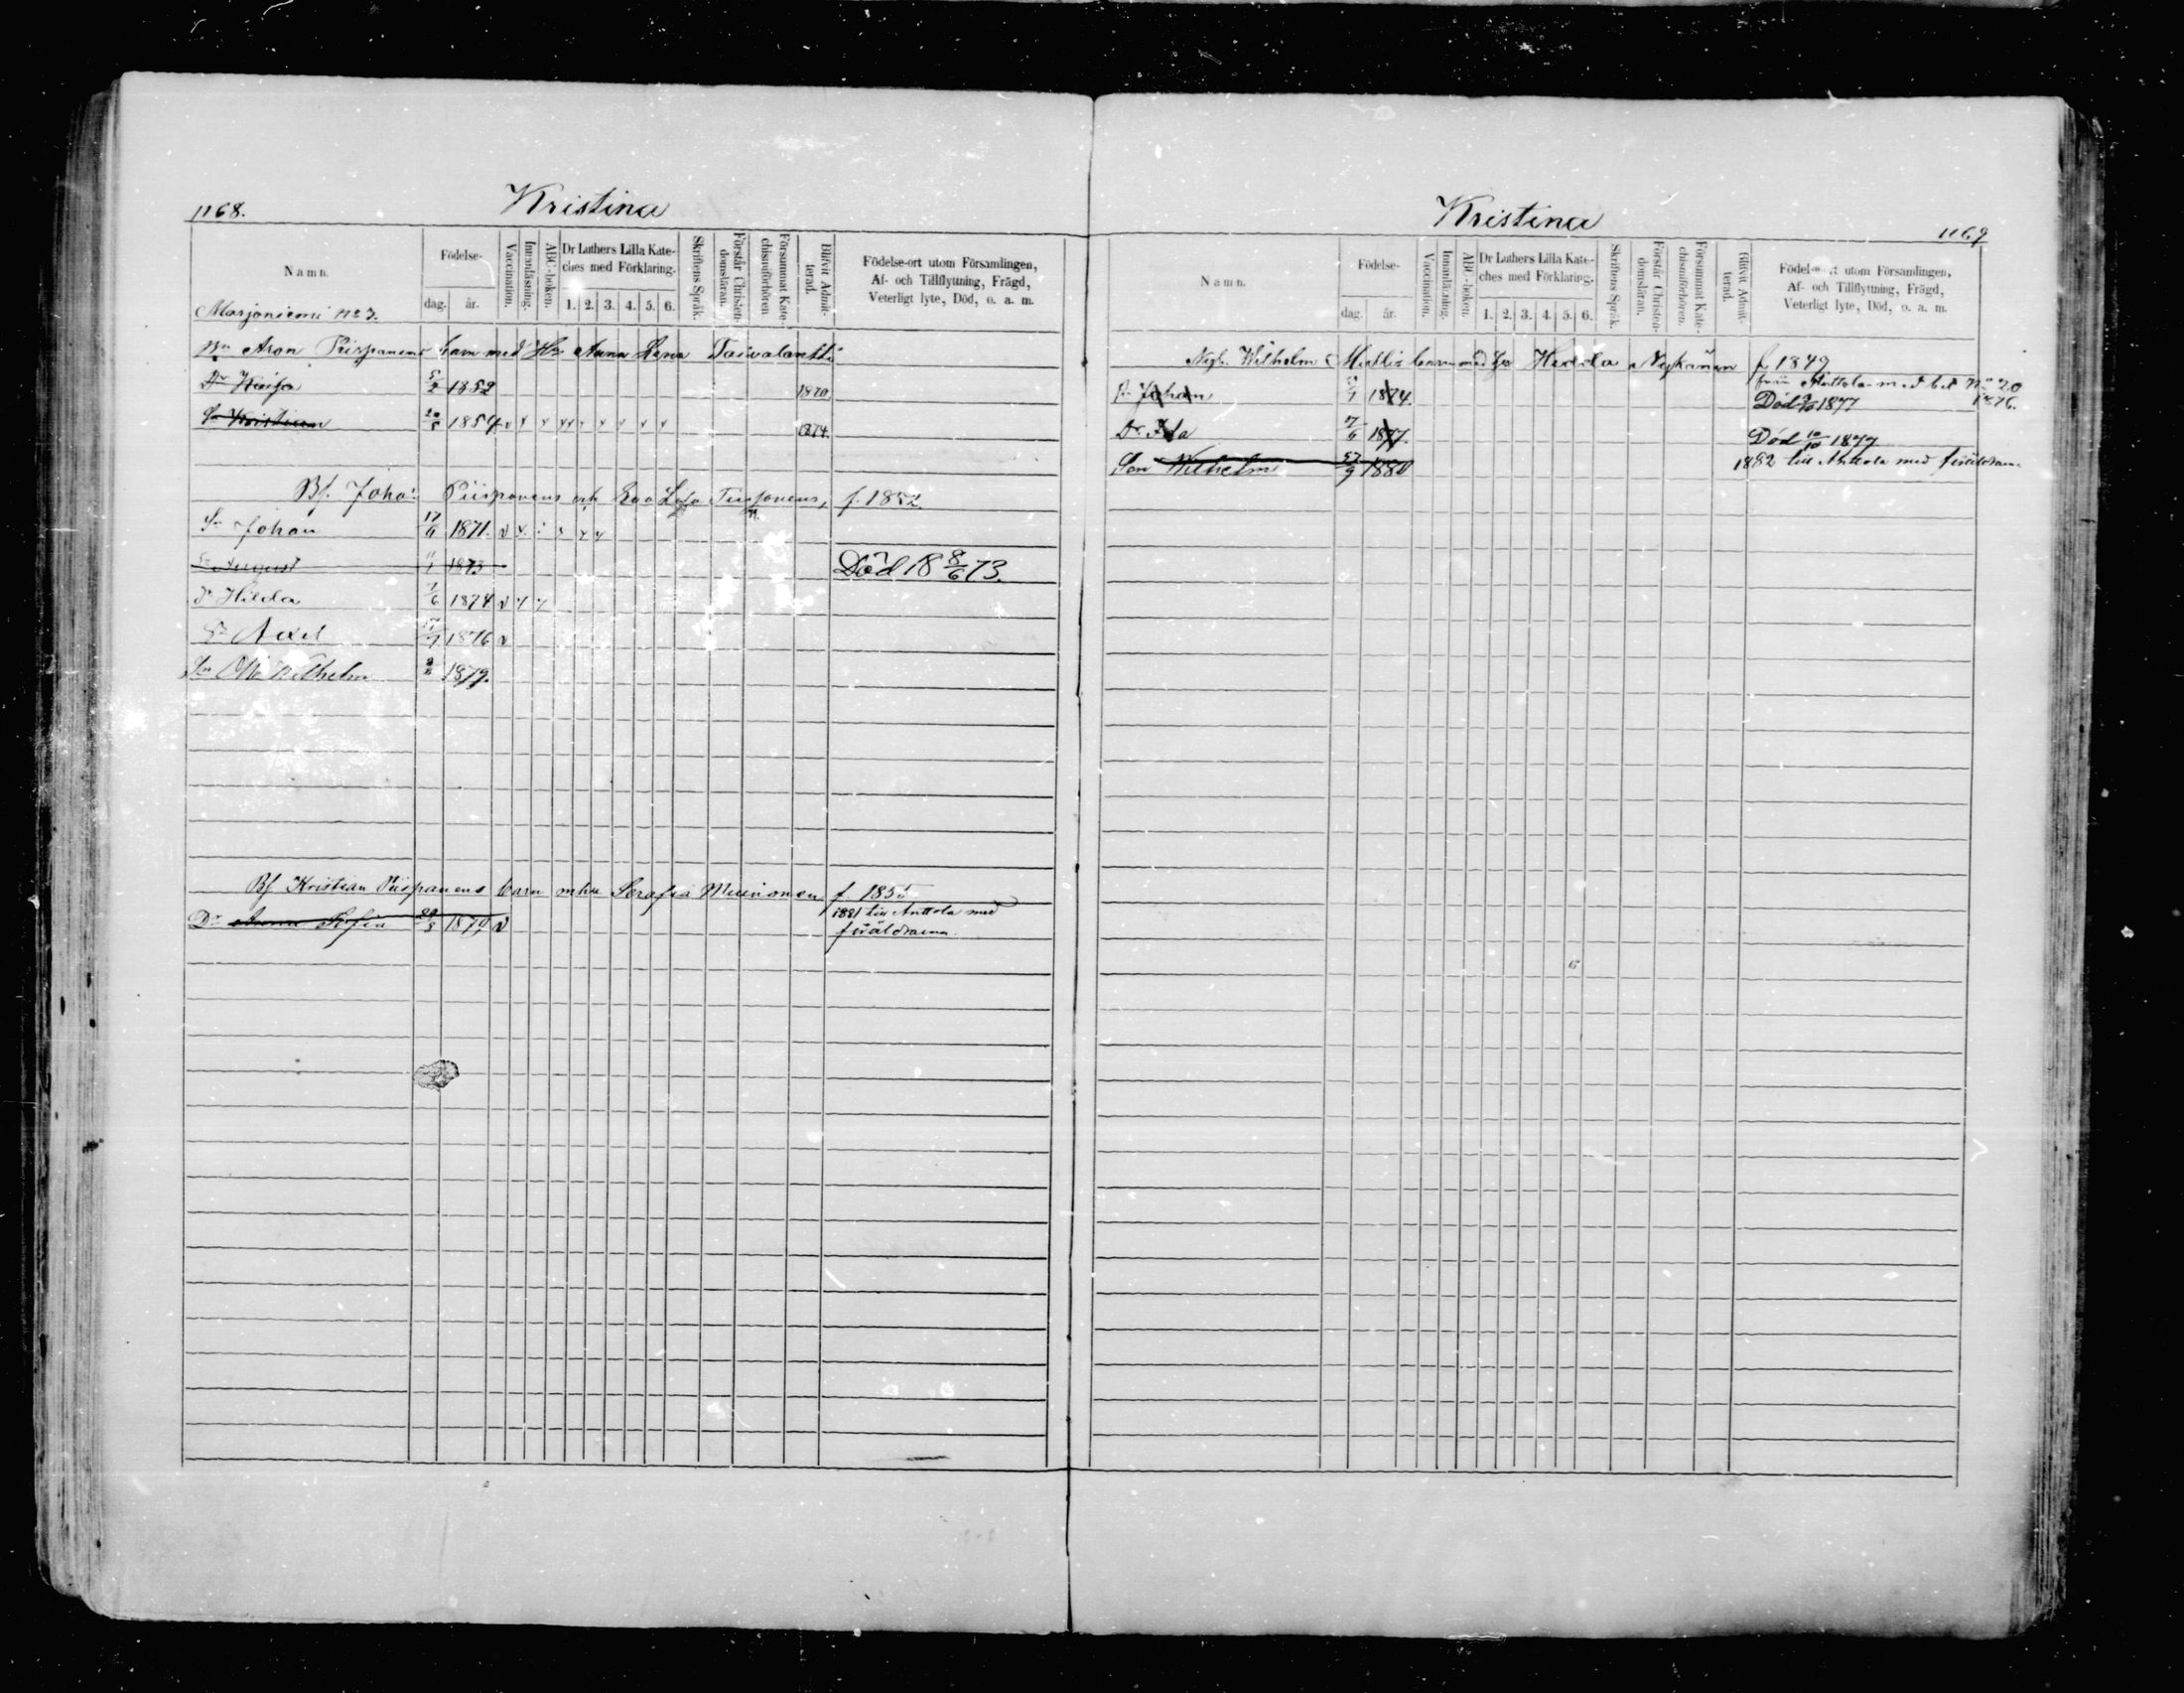 1168.
Kristina
Namn.
Födelse-
dag. år.
Vaccination.
Innanläsning.
ABC-boken.
Dr Luthers Lilla Kate-
ches med Förklaring.
1. 2. 3. 4. 5. 6.
Skriftens Språk.
Förstår Christen-
domsläran.
Försummat Kate-
chismiförhören
Blifvit Admit-
terad.
Födelse-ort utom Församlingen,
Af- och Tillflyttning, Frägd,
Veterligt lyte, Död, o. a. m.
Marjoniemi No 7.
Aron Piispanens barn med Hu Anna Lena Taivalantti
Dr 5/2 1852 1870
Sn Kristian 20/5 1854 1874.
Bf. Joha: Piispanens och Eva f. 1852
Sn Johan 17/6 1871.
Sn August 11/1 1873 Död 18 8/6 73.
Dr Hilda 7/6 1874
Sn Axel 17/7 1876
Sn Wilhelm 1879.
Bf Kristian Piispanens barn m hu Serafia Muinonen f. 185
Dr Anna Sofia 29/3 1879 1881 till Anttola med
föräldrarna
Kristina
1169
Namn.
Födelse-
dag. år.
Vaccination.
Innanläsning.
ABC-boken.
Dr Luthers Lilla Kate-
ches med Förklaring.
1. 2. 3. 4. 5. 6.
Skriftens Språk.
Förstår Christen-
domsläran.
Försummat Kate-
chismiförhören.
Blifvit Admit-
terad.
Födelse-ort utom Församlingen,
Af- och Tillflyttning, Frägd,
Veterligt lyte, Död, o. a. m.
Wilhelm barn med Hu Hedda Nykänen f. 1849
från Anttola m. No 20
1876.
Sn Johan 1874. Död 1877
Dr Ida 7/6 1877. Död 10/10 1877
Son Wilhelm 27/9 1880 1882 till Anttola med föräldrarna
6